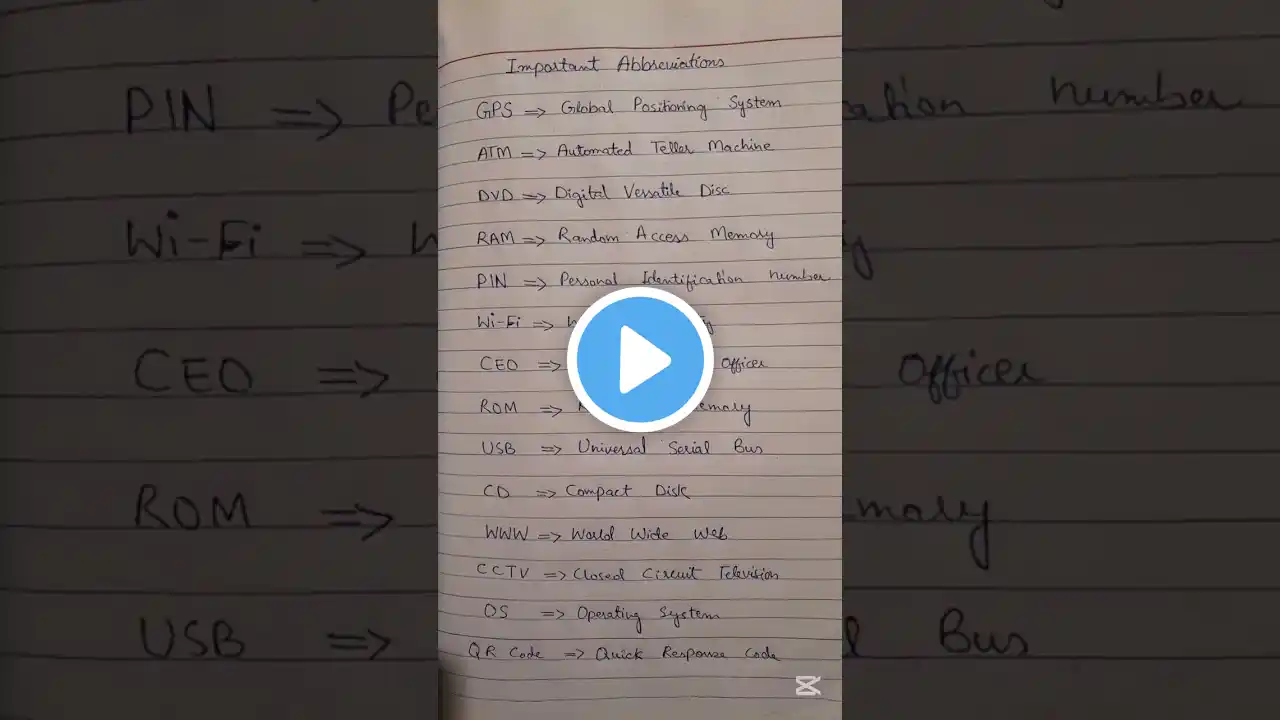 Important Abbreviations
GPS => Global Positioning System
ATM => Automated Teller Machine
DVD => Digital Versatile Disc
RAM => Random Access Memory
PIN => Personal Identification number
Wi-Fi =>
CEO => Officer
ROM => emory
USB => Universal Serial Bus
CD => Compact Disk
WWW => World Wide Web
CCTV => Closed Circuit Television
OS => Operating System
QR Code => Quick Response Code